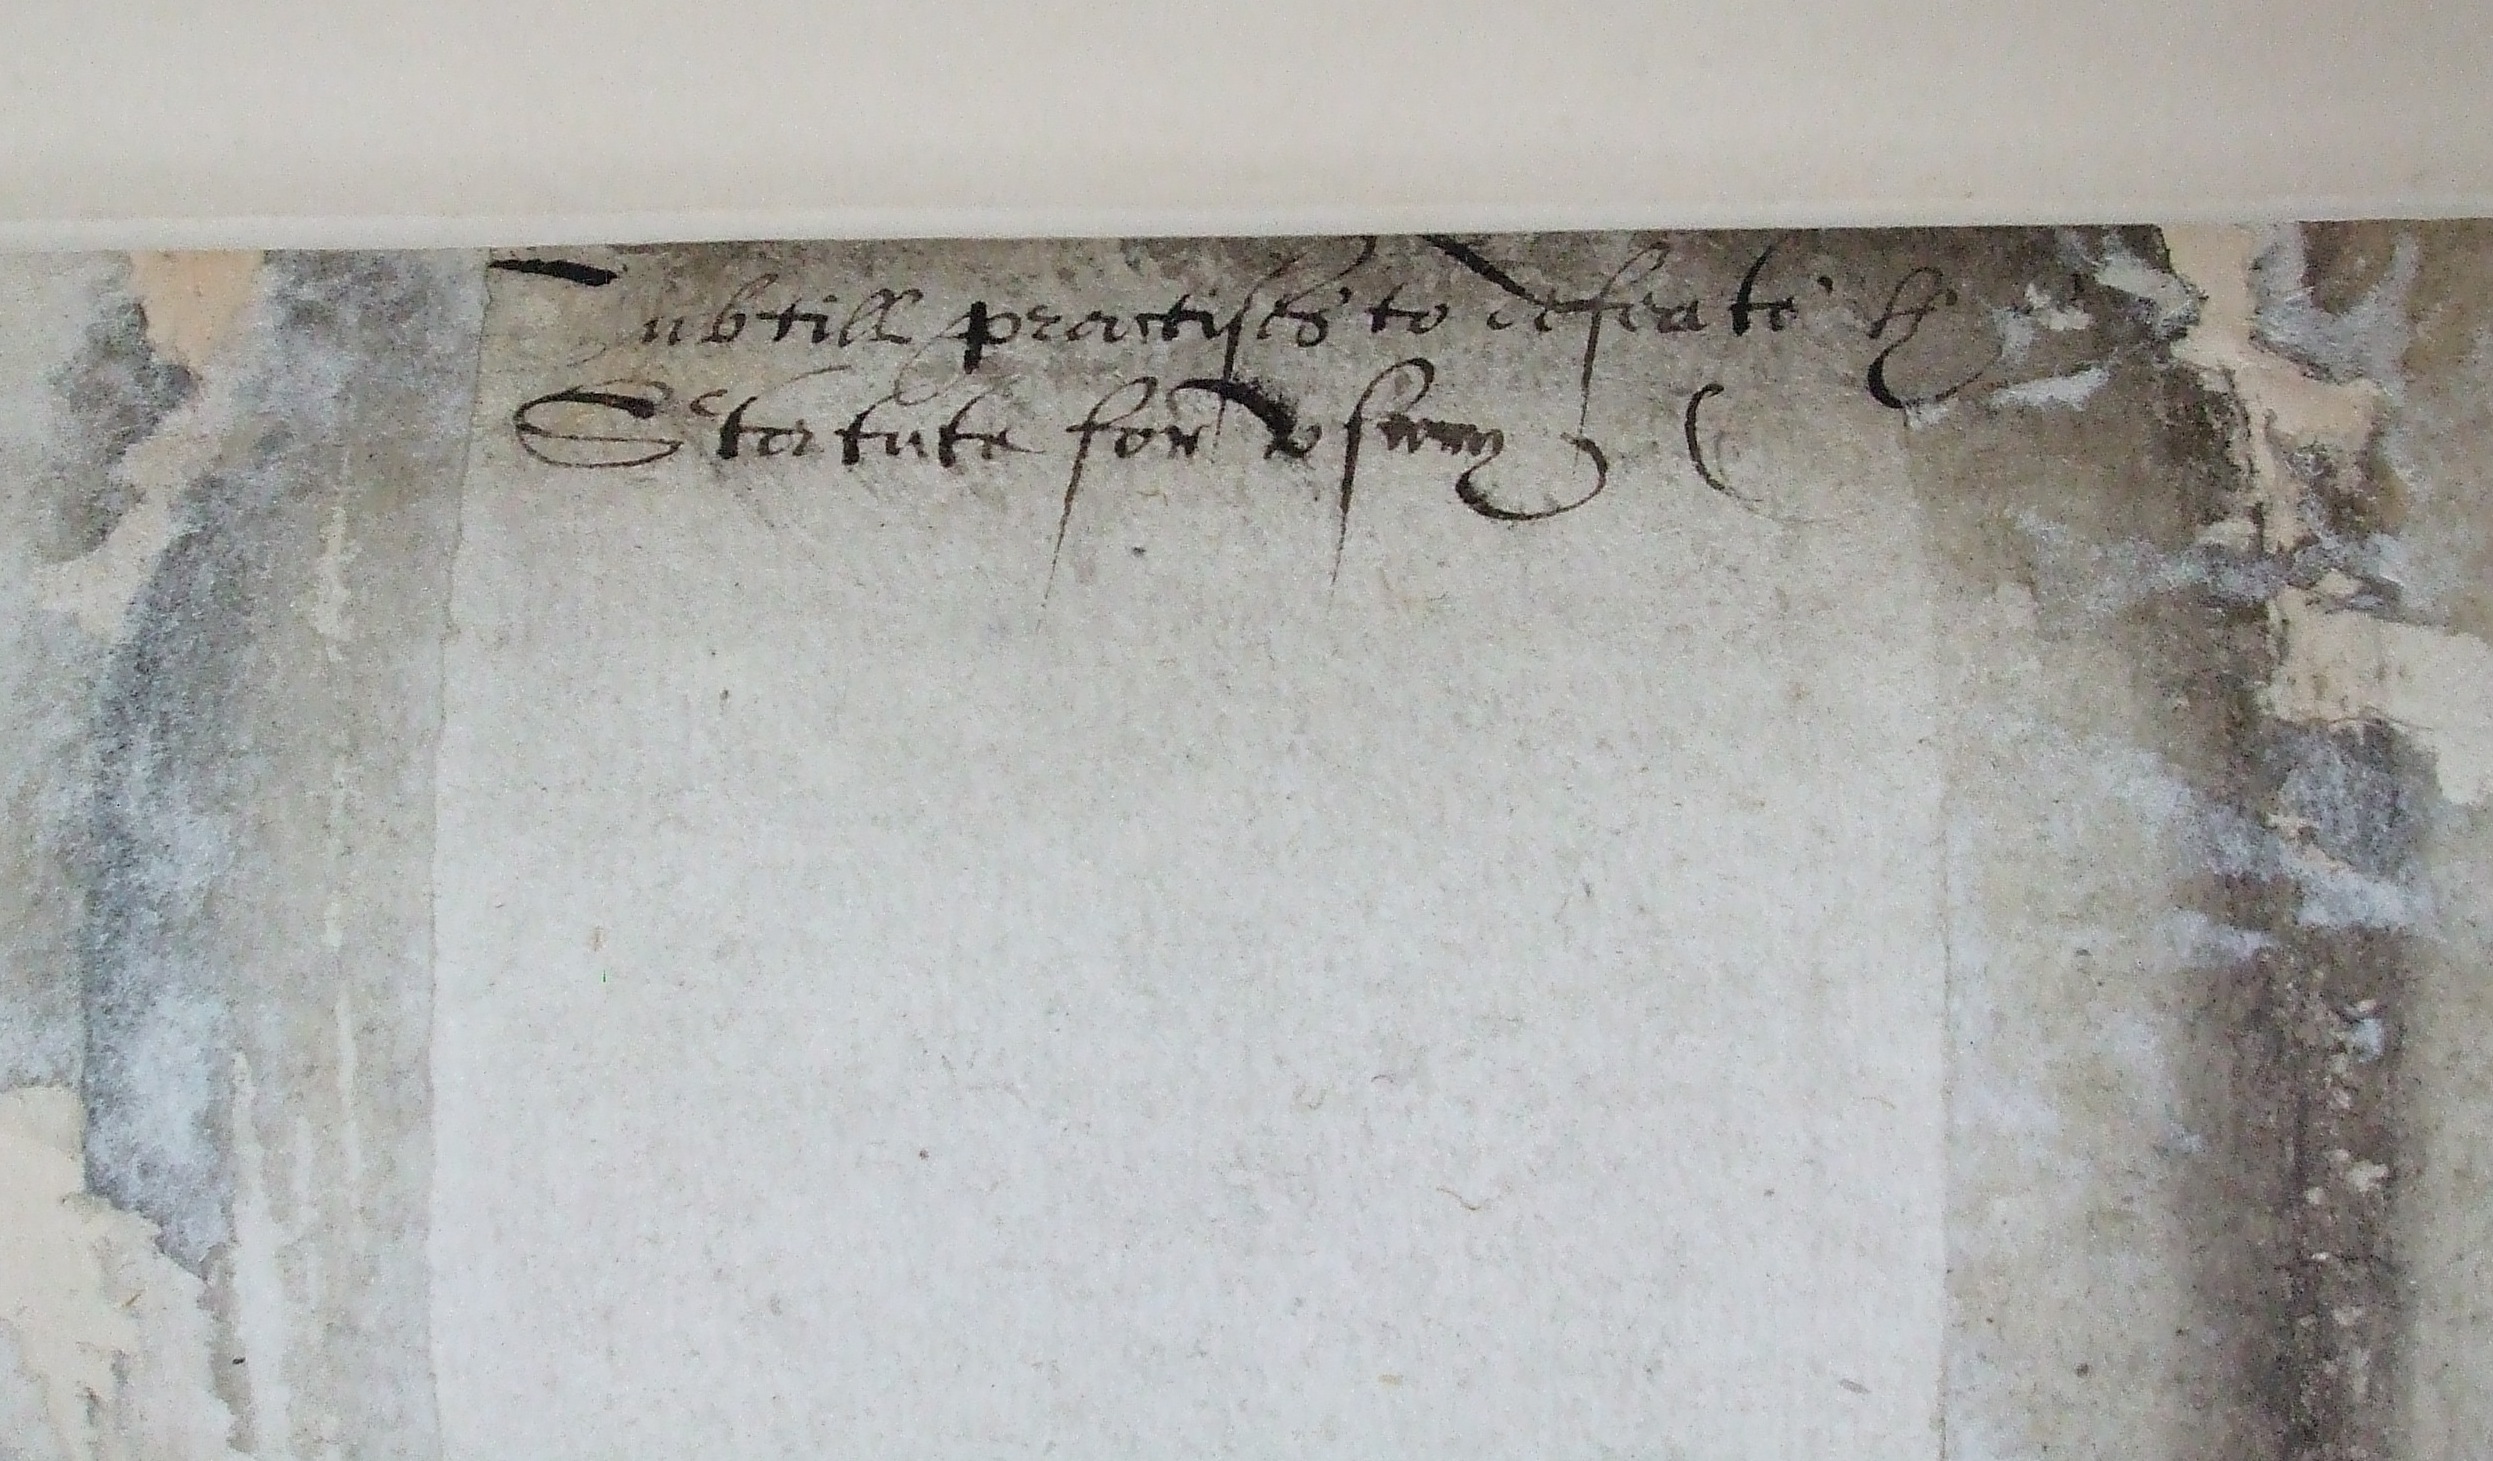 Subtill practises to defeate the
Statute for vsury